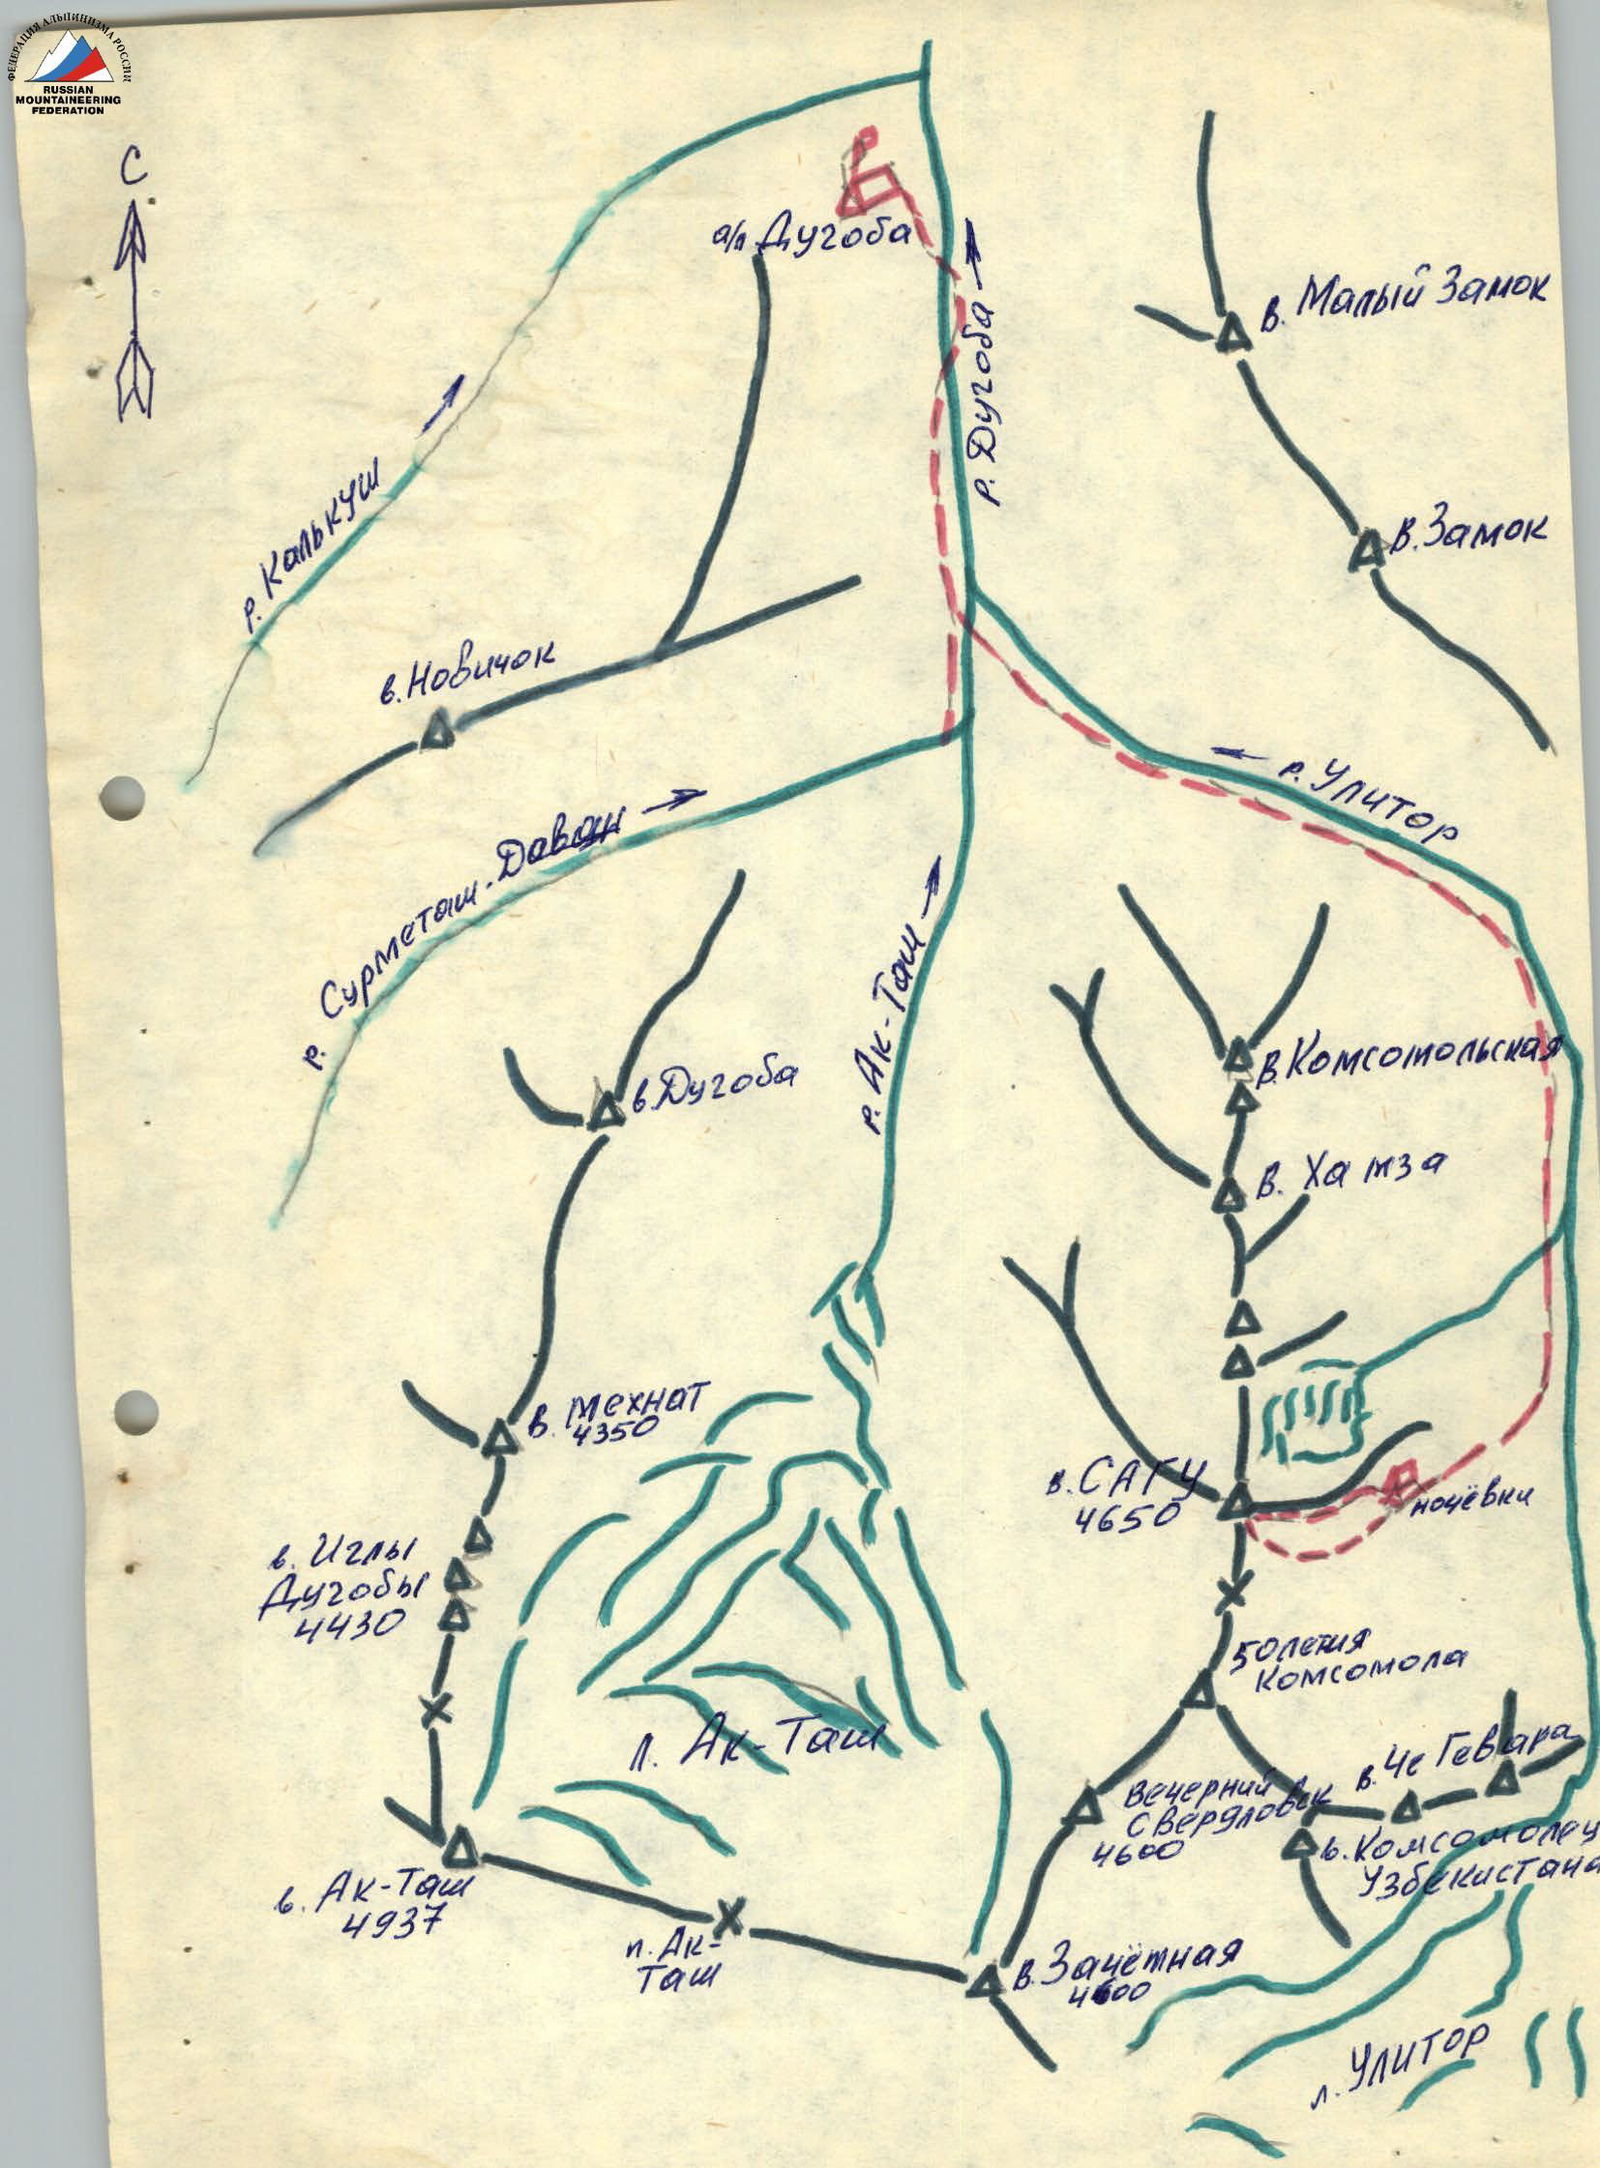 ФЕДЕРАЦИЯ АЛЬПИНИЗМА РОССИИ
RUSSIAN
MOUNTAINEERING
FEDERATION
С
а/л Дугоба
в. Малый Замок
р. Дугоба
р. Калькуш
В. Замок
в. Новичок
р. Улитор
р. Сурметаш-Даван
р. Ак-Таш
В. Комсомольская
в. Дугоба
В. Хамза
в. Мехнат
4350
в. САГУ
4650
ночёвки
в. Иглы
Дугобы
4430
50 летия
Комсомола
л. Ак-Таш
в. Че Гевара
Вечерний
Свердловск
4600
в. Комсомолец
Узбекистана
в. Ак-Таш
4937
п. Ак-
Таш
В. Зачётная
4600
л. Улитор